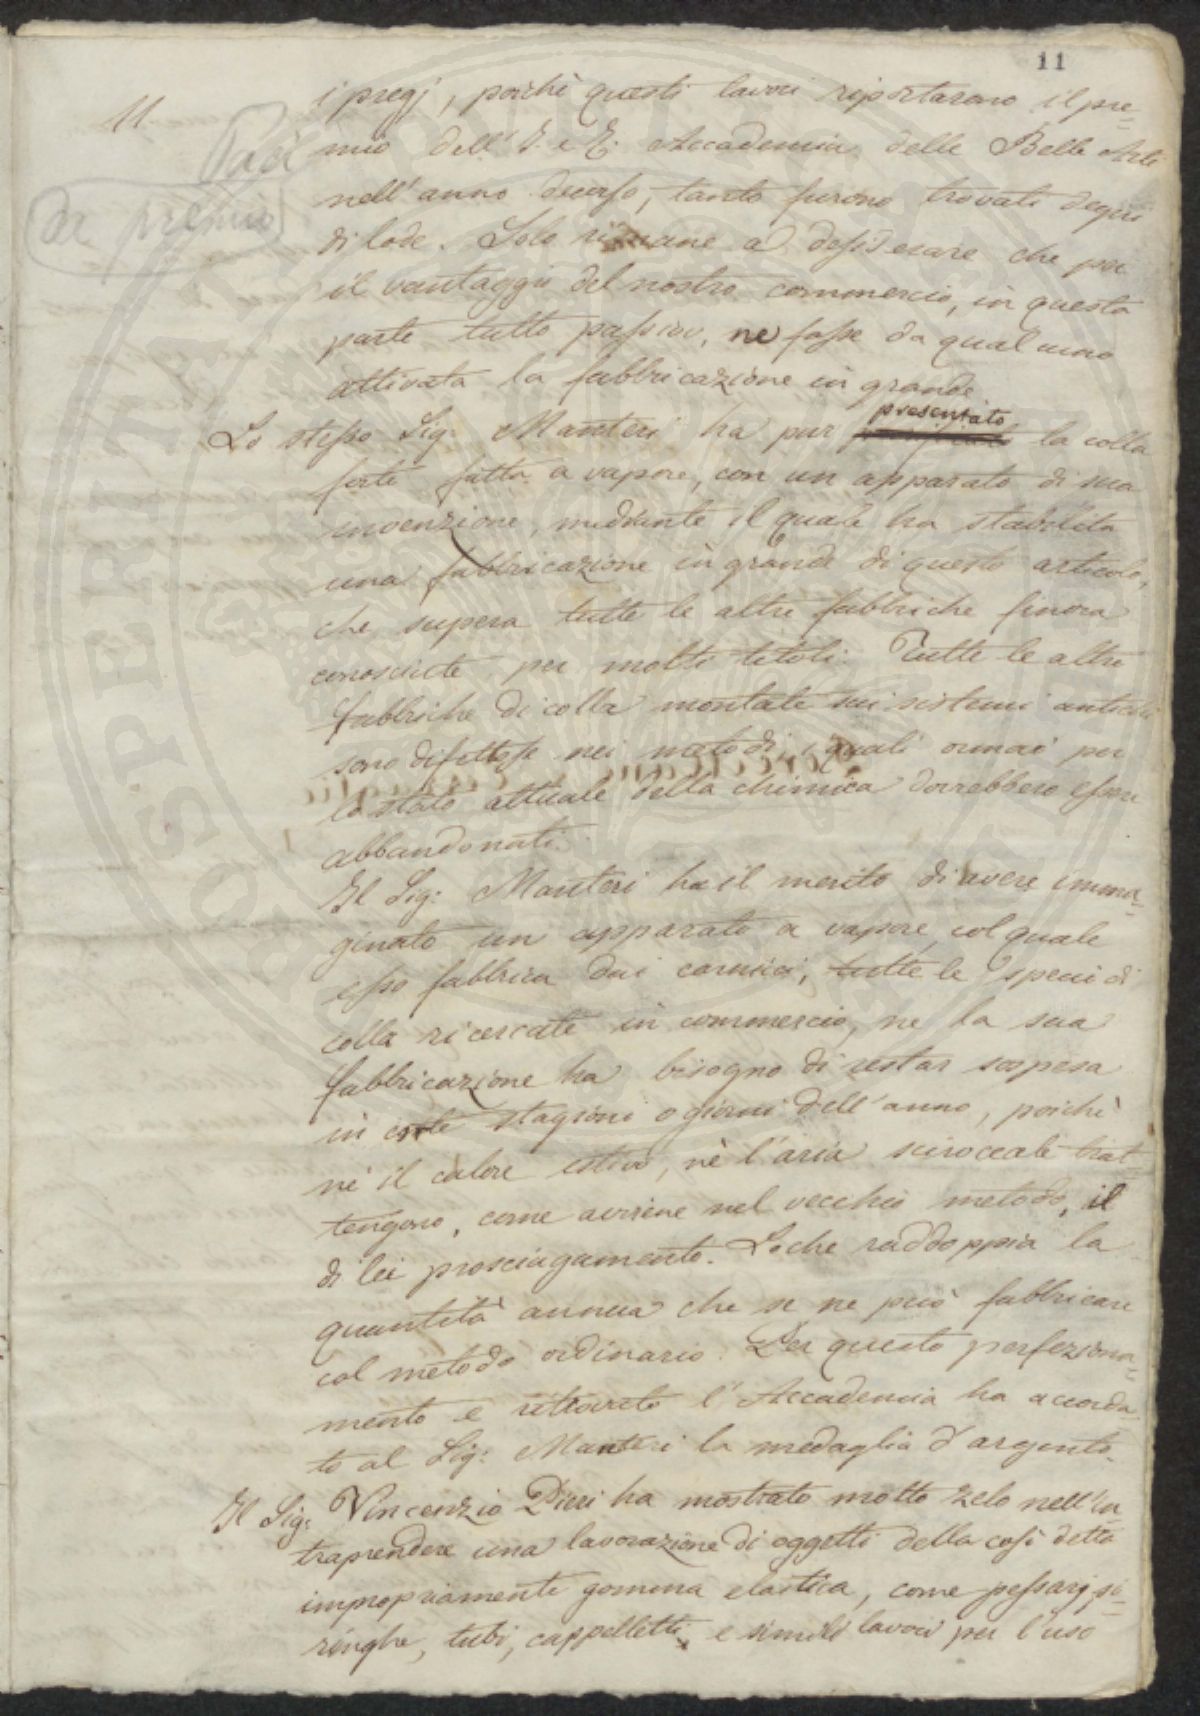 11
11
Paci
da premio
i pregj, poichè questi lavori riportarono il pre=
mio dell'I. e R. Accademia delle Belle Arti
nell'anno decorso, tanto furono trovati degni
di lode. Solo rimane a desiderare che per
il vantaggio del nostro commercio, in questa
parte tutto passivo, ne fosse da qualcuno
attivata la fabbricazione in grande
presentato
Lo stesso Sig: Manteri ha pur la colla
forte fatta a vapore, con un apparato di sua
invenzione, mediante il quale ha stabilita
una fabbricazione in grande di questo articolo,
che supera tutte le altre fabbriche finora
conosciute per molti titoli. Tutte le altre
fabbriche di colla montate sui sistemi antichi
sono difettose nei metodi, i quali ormai per
lo stato attuale della chimica dovrebbero essere
abbandonati.
Il Sig: Manteri ha il merito di avere imma=
ginato un apparato a vapore, col quale
esso fabbrica dai carnicci, tutte le specie di
colla ricercate in commercio, ne la sua
fabbricazione ha bisogno di restar sospesa
in certe stagioni o giorni dell'anno, poichè
nè il calore estivo, nè l'aria sciroccale trat=
tengono, come avviene nel vecchio metodo, il
di lei prosciugamento. Loche raddoppia la
quantità annua che se ne può fabbricare
col metodo ordinario. Per questo perfeziona=
mento e ritrovato l'Accademia ha accorda=
to al Sig: Manteri la medaglia d'argento.
Il Sig: Vincenzio Pieri ha mostrato molto zelo nell'in
traprendere una lavorazione di oggetti della così detta
impropriamente gomma elastica, come pessarj, si=
ringhe, tubi, cappelletti e simili lavori per l'uso